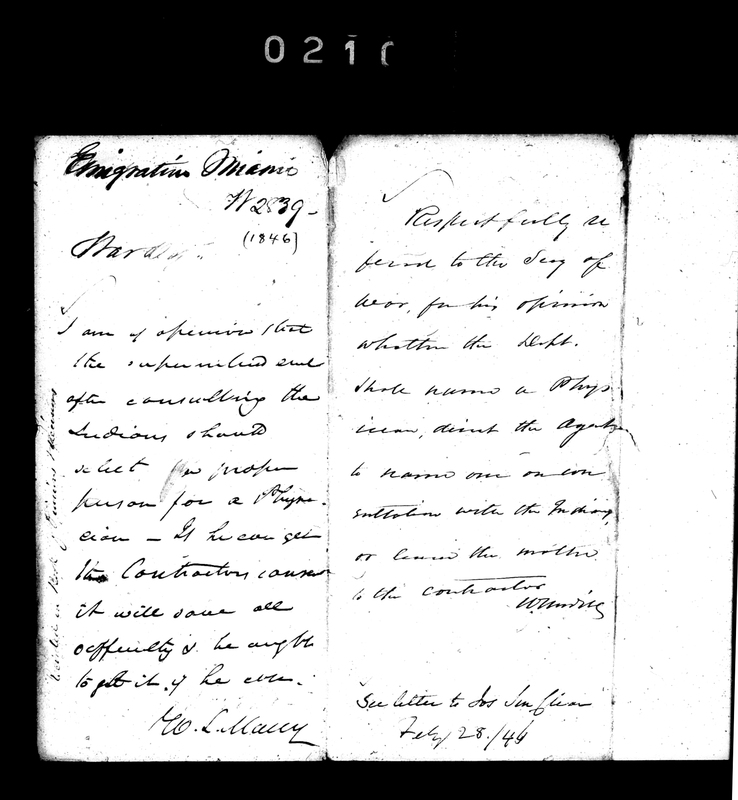 0210
Emigration Miami
W2839-
(1846)
I am of opinion that
the superintendent
after consulting the
Indians should
select a proper
person for a Physi-
cian - If he can get
the Contractors consent
it will save all
difficulty & he ought
to get it, if he can.
W. L. Marcy
Respectfully re
ferred to the Secy of
War, for his opinion
whether the Dept.
shall name a Phys
ician, direct the Agent
to name one on con
sultation with the Indians,
or leave the matter
to the contractor
W. Medill
See letter to Jos Sinclear
Feby 28./46